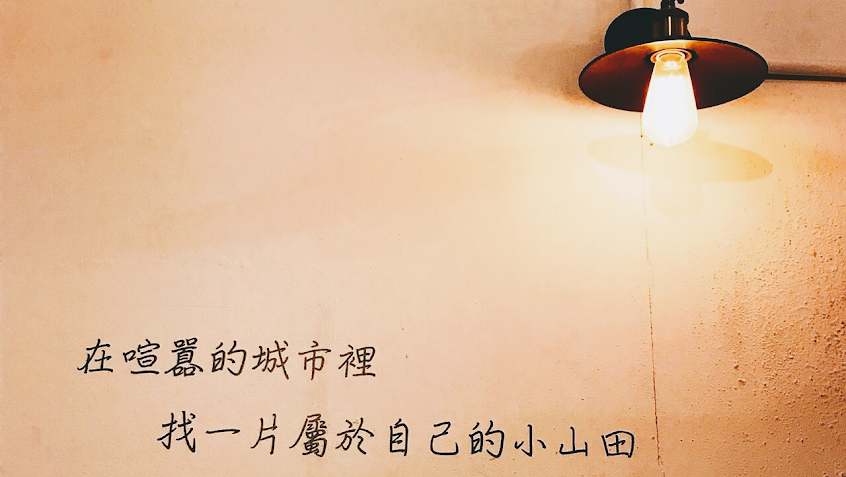 在喧囂的城市裡
找一片屬於自己的小山田